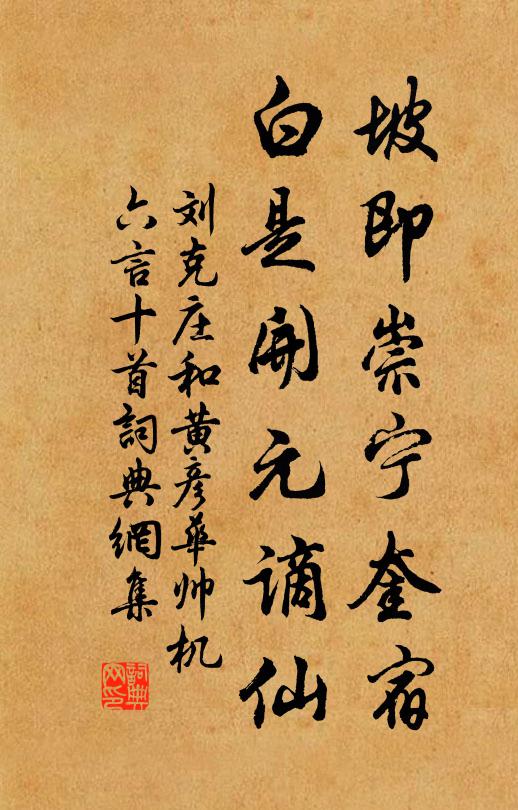 坡即崇宁奎宿
白是開元谪仙
刘克庄和黄彦華帅机
六言十首詞典網集
詞典
网印